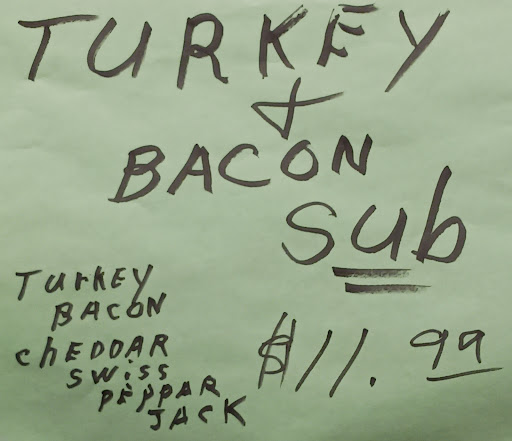 TURKEY
&
BACON
Sub
Turkey
BACON
chEDDAR
swiss
PEPPAR
JACK
$11.99